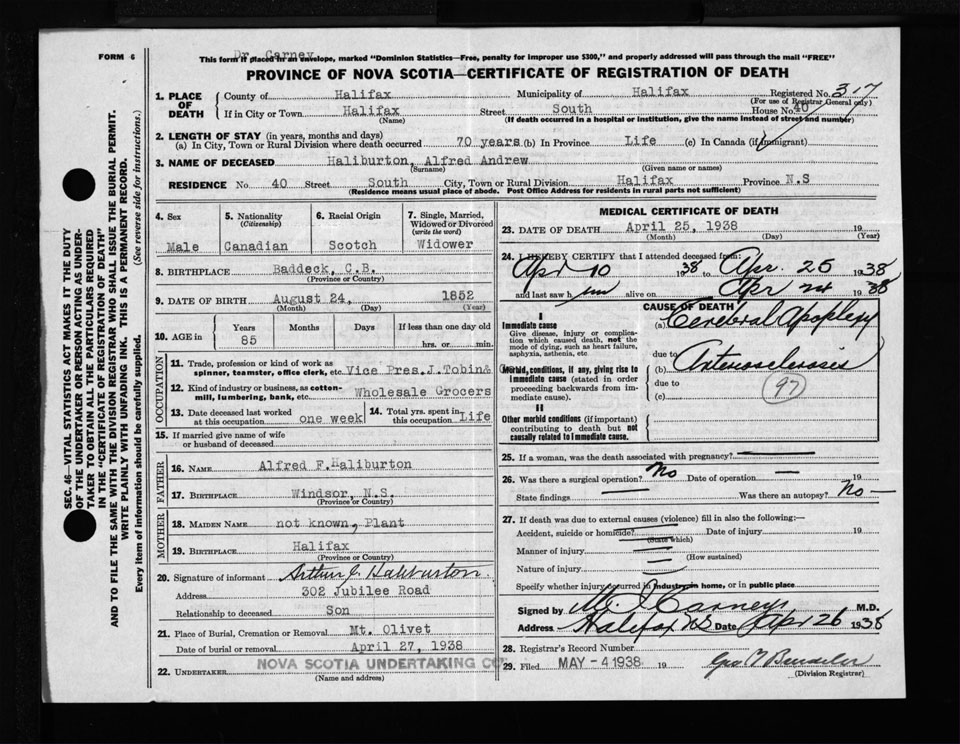 FORM 6
Dr. Carney
This form if placed in an envelope, marked "Dominion Statistics—Free, penalty for improper use $300," and properly addressed will pass through the mail "FREE"
PROVINCE OF NOVA SCOTIA—CERTIFICATE OF REGISTRATION OF DEATH
SEC. 46—VITAL STATISTICS ACT MAKES IT THE DUTY
OF THE UNDERTAKER OR PERSON ACTING AS UNDER-
TAKER TO OBTAIN ALL THE PARTICULARS REQUIRED
IN THE "CERTIFICATE OF REGISTRATION OF DEATH"
AND TO FILE THE SAME WITH THE DIVISION REGISTRAR WHO SHALL ISSUE THE BURIAL PERMIT.
WRITE PLAINLY WITH UNFADING INK. THIS IS A PERMANENT RECORD.
Every item of information should be carefully supplied. (See reverse side for instructions.)
1. PLACE OF DEATH
County of Halifax Municipality of Halifax Registered No. 317
(For use of Registrar General only)
If in City or Town Halifax Street South House No. 40
(Name) (If death occurred in a hospital or institution, give the name instead of street and number)
2. LENGTH OF STAY (in years, months and days)
(a) In City, Town or Rural Division where death occurred 70 years (b) In Province Life (c) In Canada (if immigrant)
3. NAME OF DECEASED Haliburton, Alfred Andrew
(Surname) (Given name or names)
RESIDENCE No. 40 Street South City, Town or Rural Division Halifax Province N.S
(Residence means usual place of abode. Post Office Address for residents in rural parts not sufficient)
4. Sex
Male
5. Nationality
(Citizenship)
Canadian
6. Racial Origin
Scotch
7. Single, Married, Widowed or Divorced
(write the word)
Widower
8. BIRTHPLACE Baddeck, C.B.
(Province or Country)
9. DATE OF BIRTH August 24, 1852
(Month) (Day) (Year)
10. AGE in
Years Months Days If less than one day old
85 hrs. or min.
OCCUPATION
11. Trade, profession or kind of work as
spinner, teamster, office clerk, etc. Vice Pres. J. Tobin &
12. Kind of industry or business, as cotton-
mill, lumbering, bank, etc. Wholesale Grocers
13. Date deceased last worked
at this occupation one week
14. Total yrs. spent in
this occupation Life
15. If married give name of wife
or husband of deceased
FATHER
16. NAME Alfred F. Haliburton
17. BIRTHPLACE Windsor, N.S.
(Province or Country)
MOTHER
18. MAIDEN NAME not known, Plant
19. BIRTHPLACE Halifax
(Province or Country)
20. Signature of informant Arthur J. Haliburton
Address 302 Jubilee Road
Relationship to deceased Son
21. Place of Burial, Cremation or Removal Mt. Olivet
Date of burial or removal April 27, 1938
NOVA SCOTIA UNDERTAKING CO.
22. UNDERTAKER
(Name and address)
MEDICAL CERTIFICATE OF DEATH
23. DATE OF DEATH April 25, 1938 19
(Month) (Day) (Year)
24. I HEREBY CERTIFY that I attended deceased from:
Apr 10 1938 to Apr. 25 1938
and last saw him alive on Apr 24 1938
CAUSE OF DEATH
I
Immediate cause
Give disease, injury or complica-
tion which caused death, not the
mode of dying, such as heart failure,
asphyxia, asthenia, etc
(a) Cerebral Apoplexy
due to
(b) Arteriosclerosis
due to
(c)
97
Morbid conditions, if any, giving rise to
immediate cause (stated in order
proceeding backwards from im-
mediate cause).
II
Other morbid conditions (if important)
contributing to death but not
causally related to immediate cause.
25. If a woman, was the death associated with pregnancy?
26. Was there a surgical operation? No Date of operation 19
State findings Was there an autopsy? No
27. If death was due to external causes (violence) fill in also the following:—
Accident, suicide or homicide? Date of injury 19
(State which)
Manner of injury
(How sustained)
Nature of injury
Specify whether injury occurred in industry, in home, or in public place
Signed by Carney M.D.
Address Halifax NS Date Apr 26 1938
28. Registrar's Record Number
29. Filed MAY - 4 1938 19
(Division Registrar)